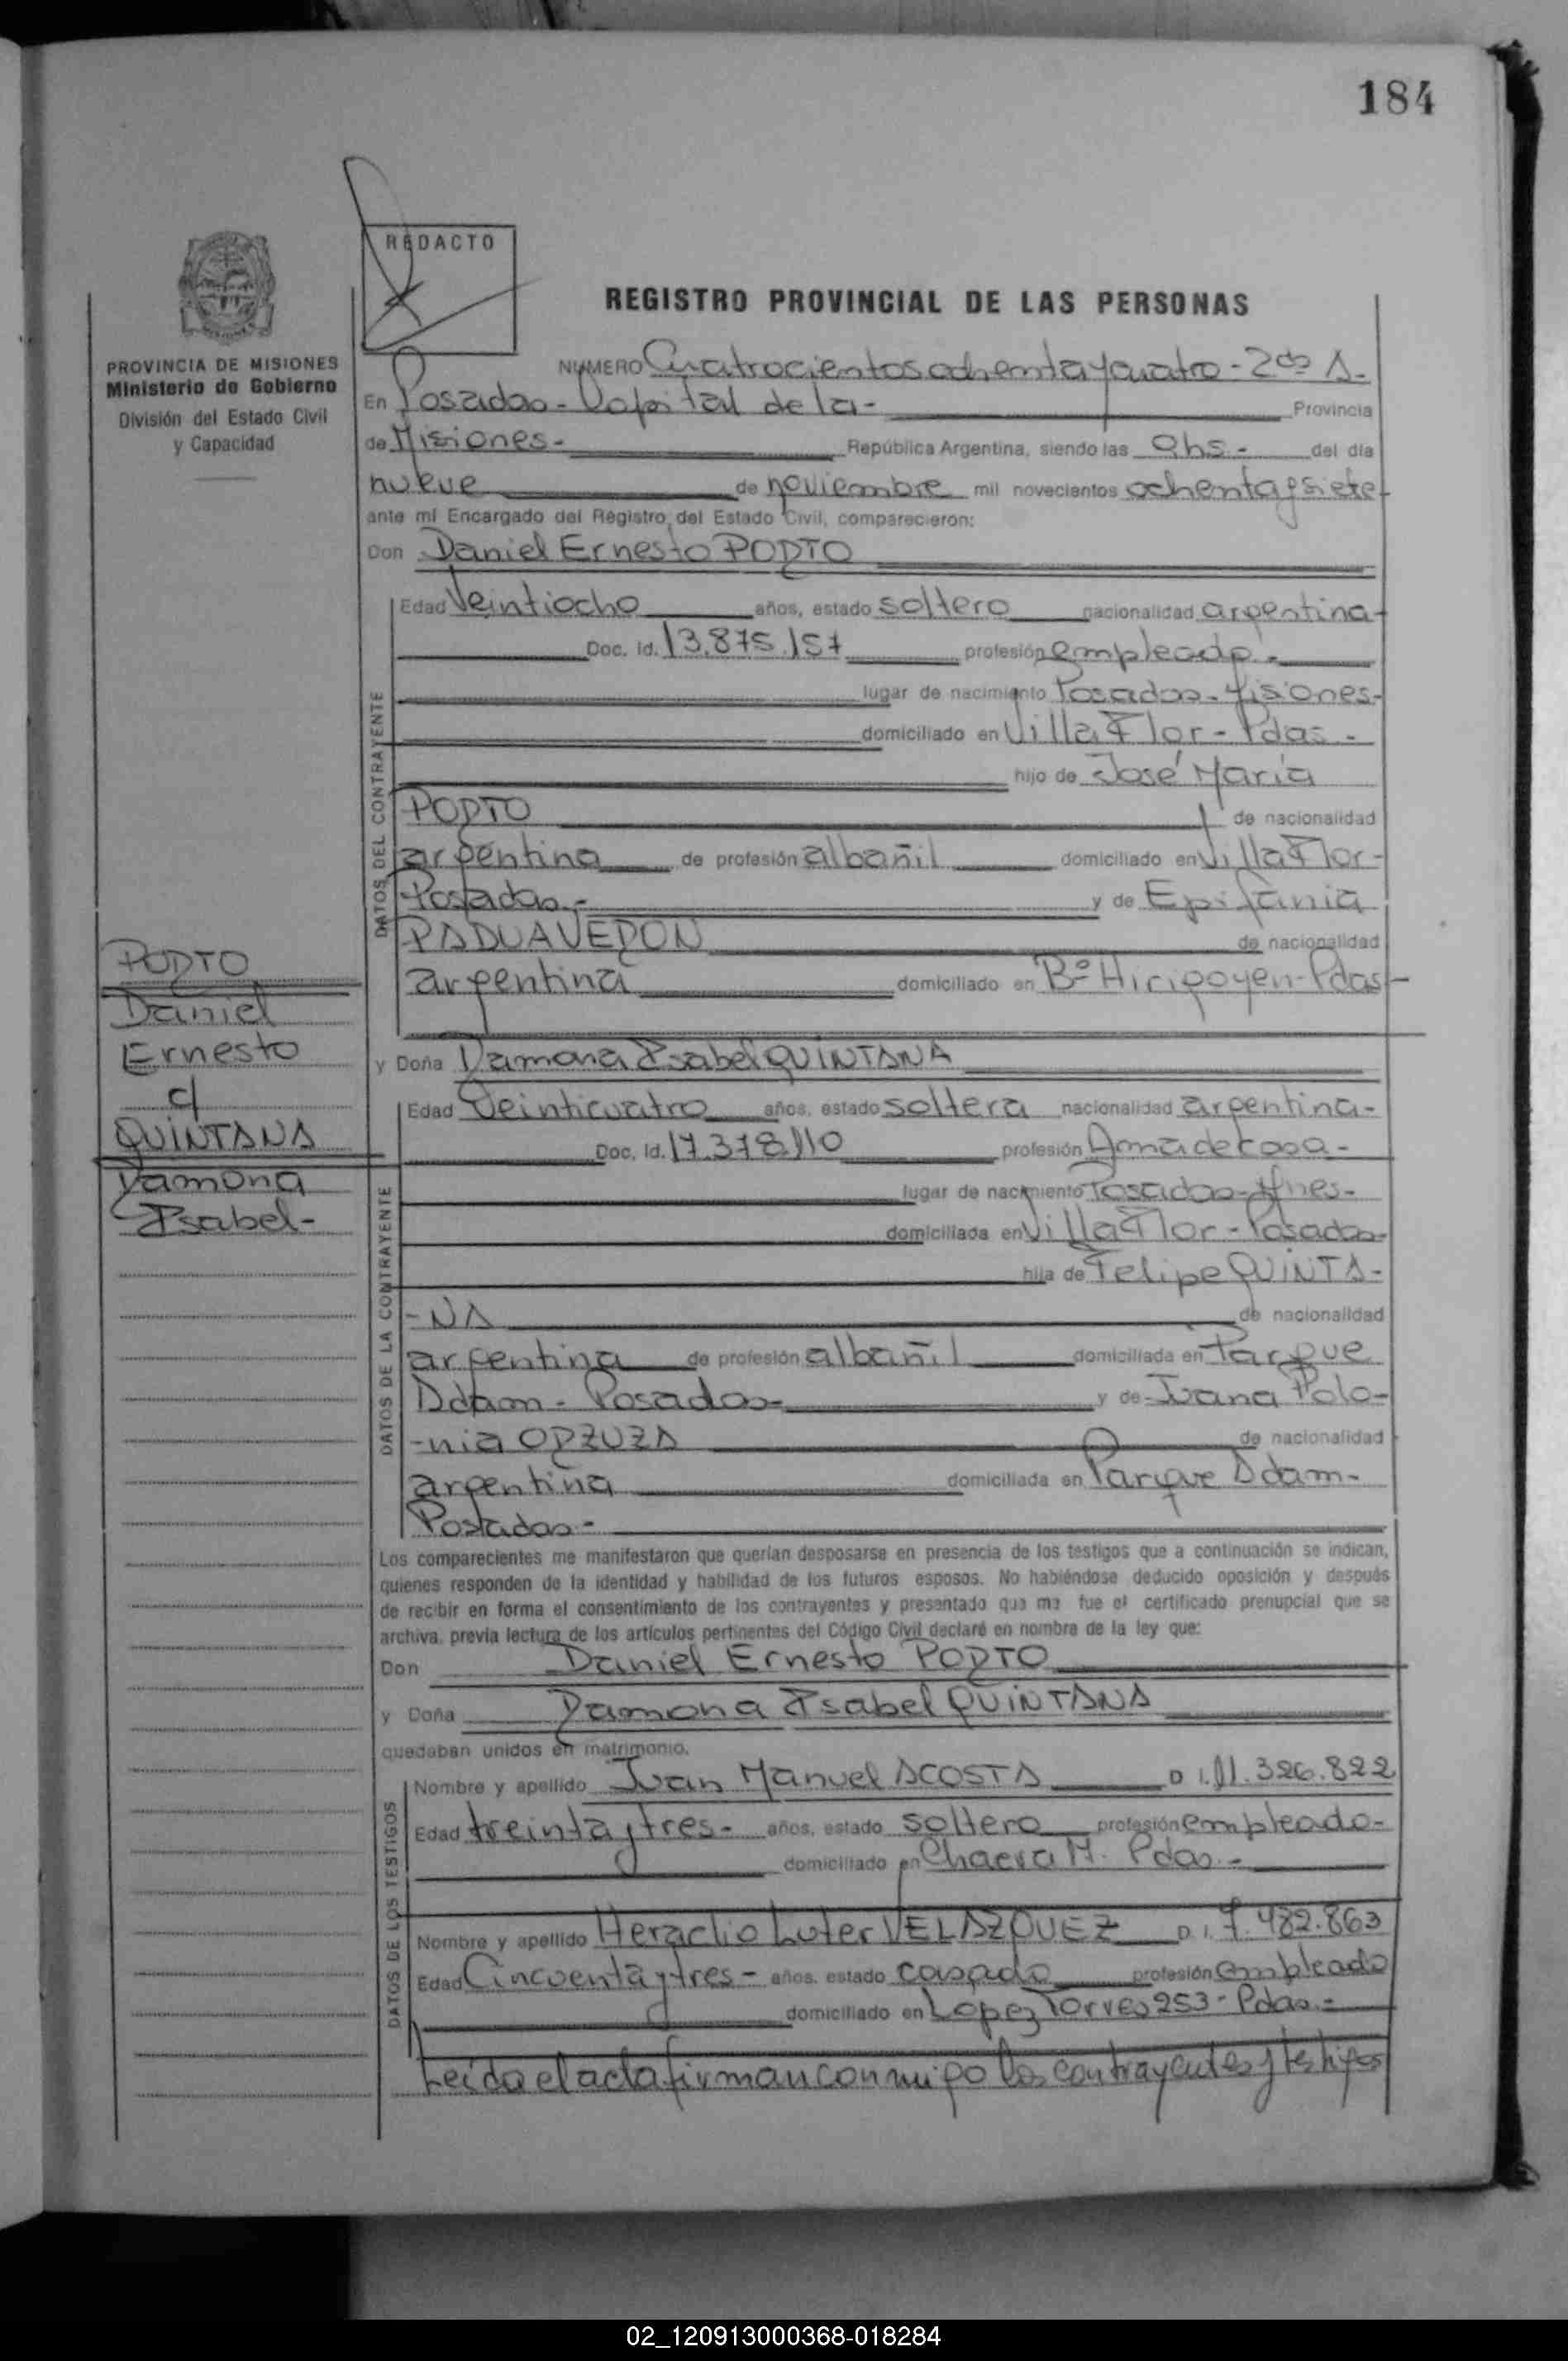 184
REDACTO
REGISTRO PROVINCIAL DE LAS PERSONAS
PROVINCIA DE MISIONES
Ministerio de Gobierno
División del Estado Civil
y Capacidad
NUMERO Cuatrocientos ochenta y cuatro - 2da A-
En Posadas - Capital de la - Provincia
de Misiones - República Argentina, siendo las 9hs - del día
nueve de noviembre mil novecientos ochenta y siete
ante mí Encargado del Registro del Estado Civil, comparecieron:
Don Daniel Ernesto PORTO
Edad Veintiocho años, estado soltero nacionalidad argentina-
Doc. Id. 13.875.157 profesión empleado -
lugar de nacimiento Posadas - Misiones-
domiciliado en Villa Flor - Pdas -
hijo de José María
PORTO de nacionalidad
argentina de profesión albañil domiciliado en Villa Flor-
Posadas - y de Epifania
PADUAVERON de nacionalidad
argentina domiciliado en Bº Hiripoyen - Pdas-
DATOS DEL CONTRAYENTE
PORTO
Daniel
Ernesto
c/
QUINTANA
Ramona
Isabel-
y Doña Ramona Isabel QUINTANA
Edad Veinticuatro años, estado soltera nacionalidad argentina-
Doc. Id. 17.378.110 profesión Ama de casa -
lugar de nacimiento Posadas - Mnes-
domiciliada en Villa Flor - Posadas-
hija de Felipe QUINTA-
-NA de nacionalidad
argentina de profesión albañil domiciliada en Parque
Adam - Posadas- y de Juana Polo-
-nia ORZUZA de nacionalidad
argentina domiciliada en Parque Adam-
Posadas -
DATOS DE LA CONTRAYENTE
Los comparecientes me manifestaron que querían desposarse en presencia de los testigos que a continuación se indican,
quienes responden de la identidad y habilidad de los futuros esposos. No habiéndose deducido oposición y después
de recibir en forma el consentimiento de los contrayentes y presentado que me fue el certificado prenupcial que se
archiva, previa lectura de los artículos pertinentes del Código Civil declaré en nombre de la ley que:
Don Daniel Ernesto PORTO
y Doña Ramona Isabel QUINTANA
quedaban unidos en matrimonio.
Nombre y apellido Juan Manuel ACOSTA D.I. 11.326.822
Edad treinta y tres- años, estado soltero profesión empleado-
domiciliado en Chacra M. Pdas -
Nombre y apellido Heraclio Luter VELAZQUEZ D.I. 7.482.863
Edad Cincuenta y tres - años, estado casado profesión empleado
domiciliado en Lopez Torres 253 - Pdas -
DATOS DE LOS TESTIGOS
Leída el acta firman conmigo los contrayentes y testigos
02_120913000368-018284